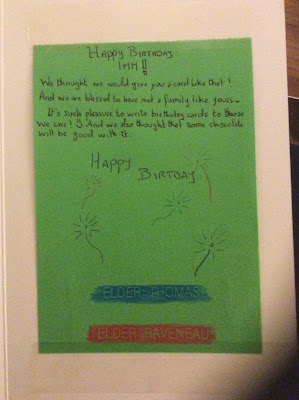 HAPPY BIRTHDAY
IMM!
We thought we would give you a card like that!
And we are blessed to have met a family like yours.
It's such pleasure to write birthday cards to those
We care! And we also thought that some chocolate
will be good with it.
HAPPY
BIRTDAY
ELDER THOMAS
ELDER RAVENEAU